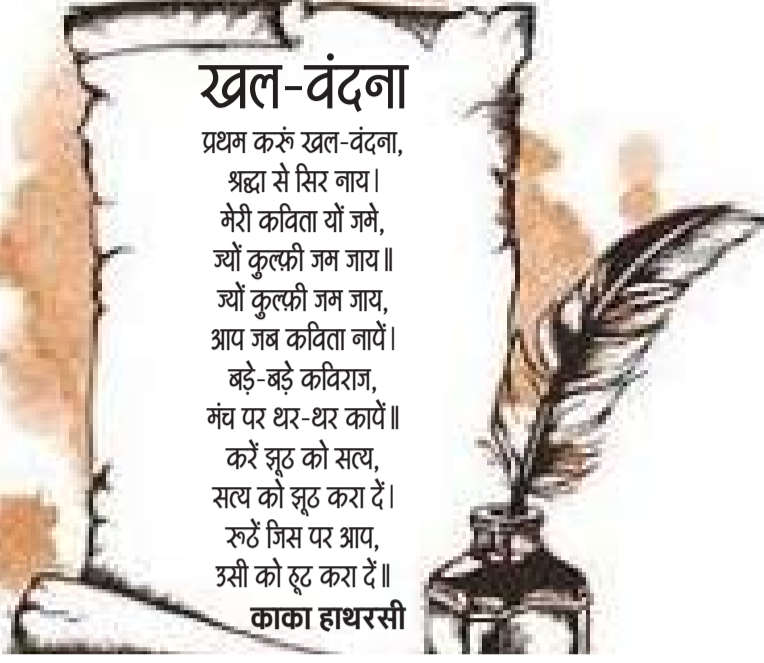 खल-वंदना
प्रथम करूं खल-वंदना,
श्रद्धा से सिर नाय।
मेरी कविता यों जमे,
ज्यों कुल्फ़ी जम जाय॥
ज्यों कुल्फ़ी जम जाय,
आप जब कविता नापें।
बड़े-बड़े कविराज,
मंच पर थर-थर कापें॥
करें झूठ को सत्य,
सत्य को झूठ करा दें।
रूठें जिस पर आप,
उसी को हूट करा दें॥
काका हाथरसी